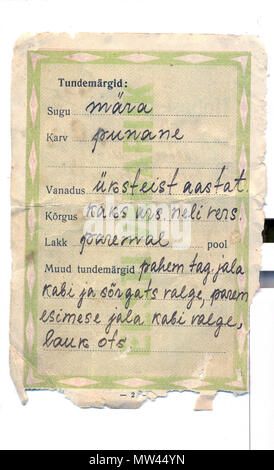 Tundemärgid:
Sugu mära
Karv punane
Vanadus üksteist aastat.
Kõrgus kaks ars. neli vers.
Lakk paremal pool
Muud tundemärgid pahem tag. jala
kabi ja sõrgats valge, parem
esimese jala kabi valge,
lauk ots.
— 2 —
alamy
Image ID: MW44YN
www.alamy.com